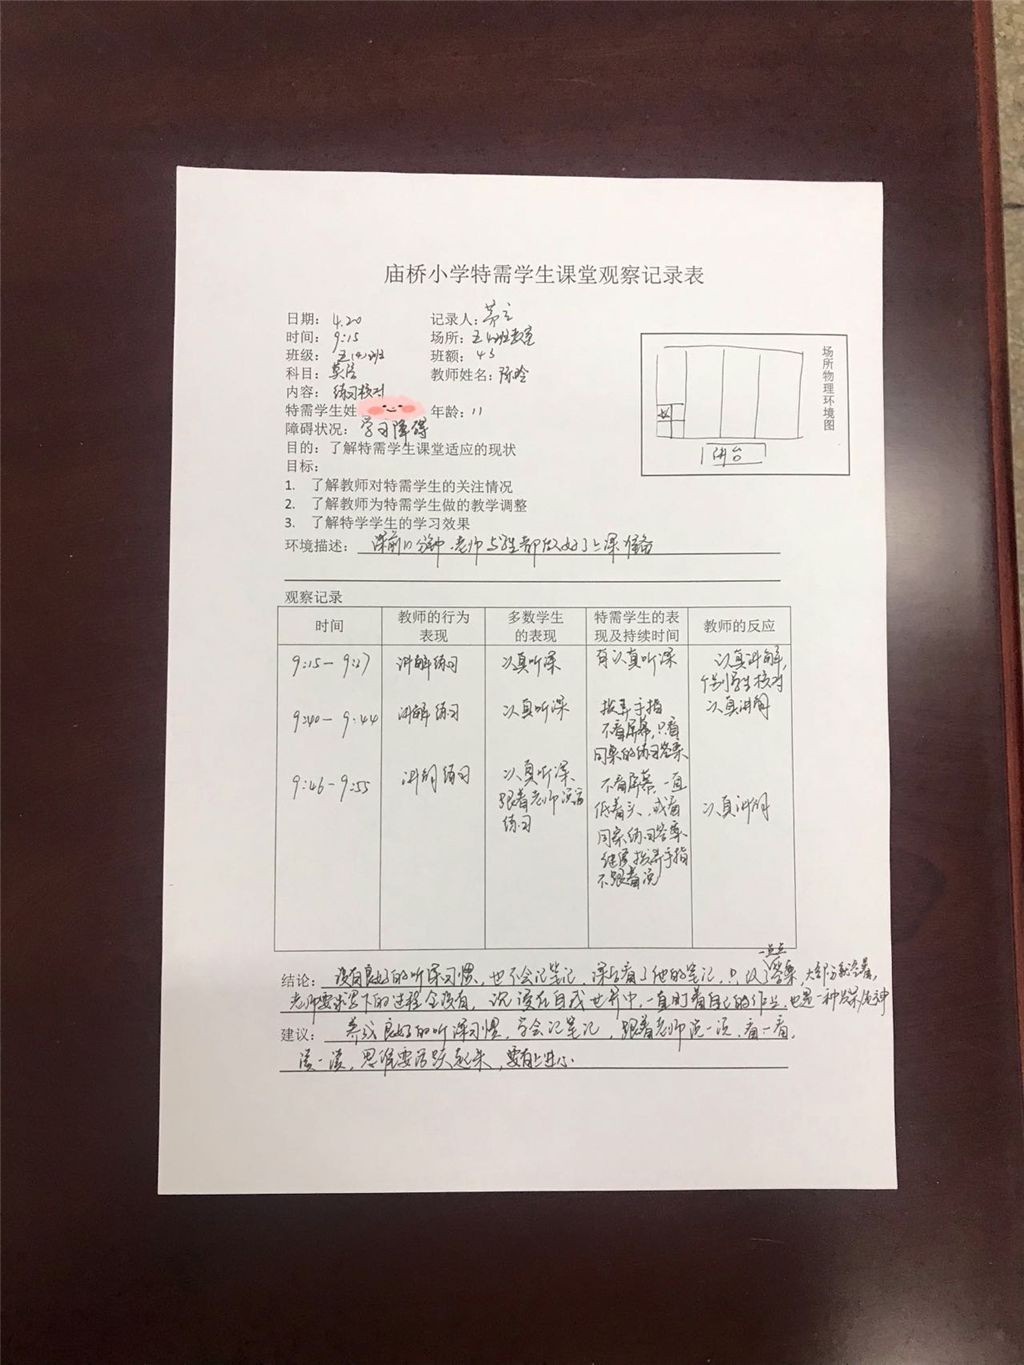 庙桥小学特需学生课堂观察记录表
日期： 4.20 记录人：
时间： 9:15 场所：五(4)班教室
班级： 五(4)班 班额： 43
科目： 英语 教师姓名：陈晗
内容： 练习核对
特需学生姓 年龄：11
障碍状况： 学习障碍
目的：了解特需学生课堂适应的现状
目标：
1. 了解教师对特需学生的关注情况
2. 了解教师为特需学生做的教学调整
3. 了解特学学生的学习效果
环境描述： 课前10分钟，老师与学生都做好了上课准备
场所物理环境图
讲台
观察记录
时间 教师的行为表现 多数学生的表现 特需学生的表现及持续时间 教师的反应
9:15－9:27 讲解练习 认真听课 有认真听课 认真讲解，个别学生核对
9:40－9:44 讲解练习 认真听课 拨弄手指 不看屏幕，只看同桌的练习答案 认真讲解
9:46－9:55 讲解练习 认真听课，跟着老师 练习 不看屏幕，一直低着头，或看同桌练习答案 继续拨弄手指 不跟着说 认真讲解
结论： 没有良好的听课习惯，也不会记笔记，课后看了他的笔记，只 了一点点答案，大部分都空着，
老师要求写下的过程全没有， 在自己世界中，一直盯着自己的作业，也是一种发呆
建议： 养成良好的听课习惯，学会记笔记，跟着老师说一说，看一看，
读一读，思维要活跃起来，要有上进心